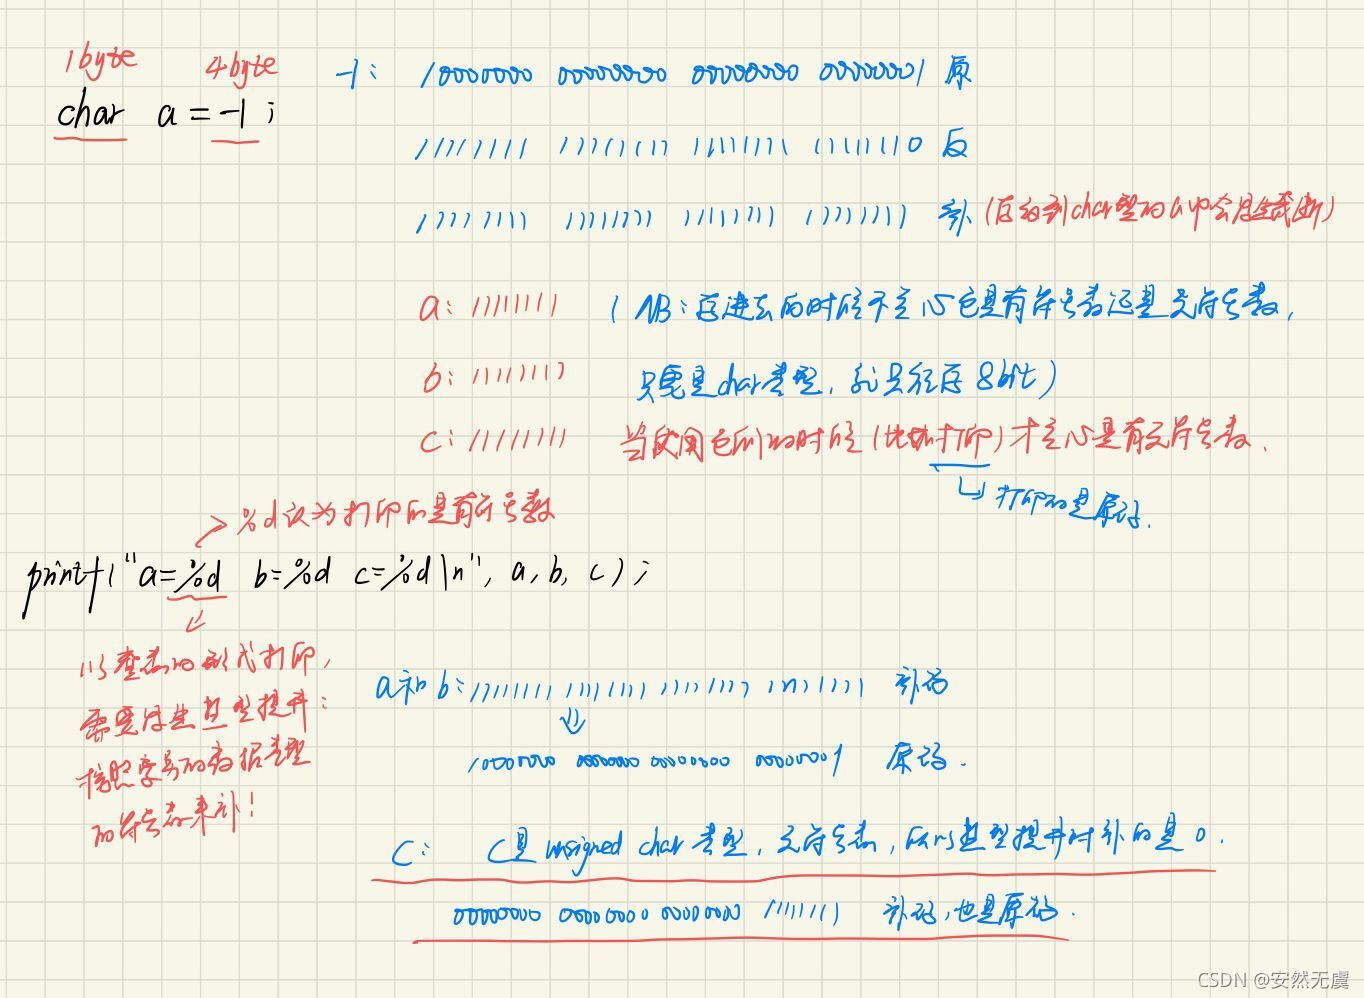 1byte 4byte
char a = -1 ;
-1: 10000000 00000000 00000000 00000001 原
11111111 11111111 11111111 11111110 反
11111111 11111111 11111111 11111111 补 (存的到char型的a中会发生截断)
a: 11111111 ( NB: 存进去的时候不关心它是有符号数还是无符号数,
b: 11111111 只要是char类型, 就只能存 8bit)
c: 11111111 当使用它们的时候 (比如打印) 才关心是有无符号数.
打印的是原码.
%d认为打印的是有符号数
printf("a=%d b=%d c=%d\n", a, b, c);
以整型的形式打印,
需要发生整型提升:
按照变量的数据类型
的符号位来补!
a和b: 11111111 11111111 11111111 11111111 补码
10000000 00000000 00000000 00000001 原码.
C: C是 unsigned char 类型, 无符号数, 所以整型提升时补的是 0.
00000000 00000000 00000000 11111111 补码,也是原码.
CSDN @安然无虞